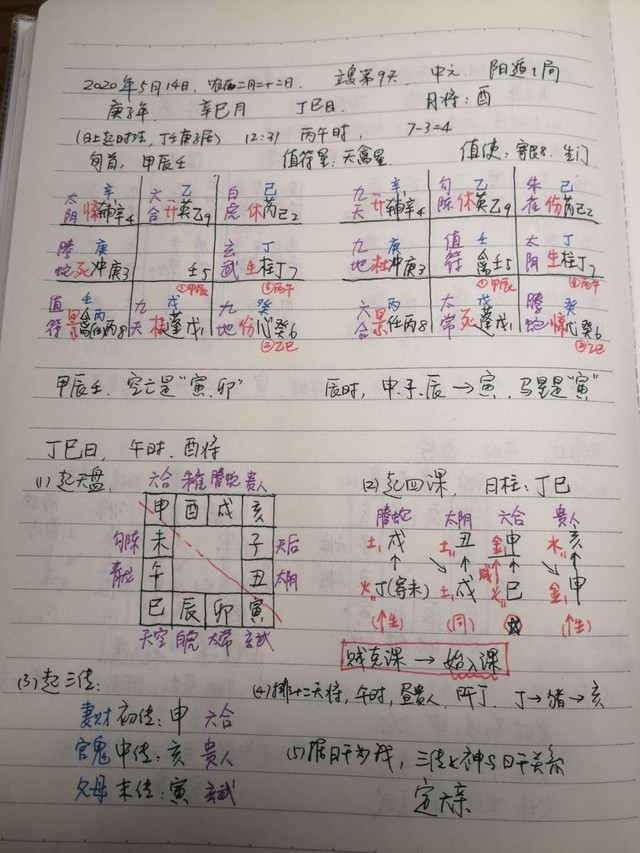 2020年5月14日. 农历二月二十二日. 立夏第9天 中元 阳遁1局
庚子年. 辛巳月 丁巳日. 月将:酉
(日上起时法,丁壬庚子居) 12:31 丙午时. 7-3=4
旬首,甲辰壬 值符星:天禽星. 值使:寄艮8.生门
辛 乙 己 辛 乙 己
太阴 惊辅辛4 六合 开英乙9 白虎 休芮己2 九天 开辅辛4 勾陈 休英乙9 朱雀 伤芮己2
庚 丁 庚 壬 丁
腾蛇 死冲庚3 壬5 玄武 生柱丁7 九地 杜冲庚3 值符 禽壬5 太阴 生柱丁7
①甲辰 ③丙午 ①甲辰 ③丙午
壬 戊 癸 丙 戊 癸
值符 景禽任丙8 九天 杜蓬戊1 九地 伤心癸6 六合 景任丙8 太常 死蓬戊1 腾蛇 惊心癸6
②乙巳 ②乙巳
甲辰壬,空亡是"寅、卯" 辰时,申.子.辰→寅,马星是"寅"
丁巳日、午时.酉将
(1)起天盘. 六合 朱雀 腾蛇 贵人 (2)起四课, 日柱:丁巳
申 酉 戌 亥 腾蛇 太阴 六合 贵人
勾陈 未 子 天后 土戌 土丑 金申 水亥
青龙 午 丑 太阴 贼
巳 辰 卯 寅 火丁(寄未) 土戌 火巳 金申
天空 白虎 太常 玄武 (↑生) (同) (↑生)
贼克课→始入课
(3)起三传: (4)排十二天将,午时,昼贵人.丙丁.丁→猪→亥
妻财 初传:申 六合
官鬼 中传:亥 贵人 (5)据日干为我,三传地神与日干关系
父母 末传:寅 玄武 定六亲